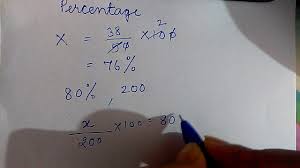 Percentage
X = 38/50 X100 2
= 76%
80% , 200
x/200 X100 = 80